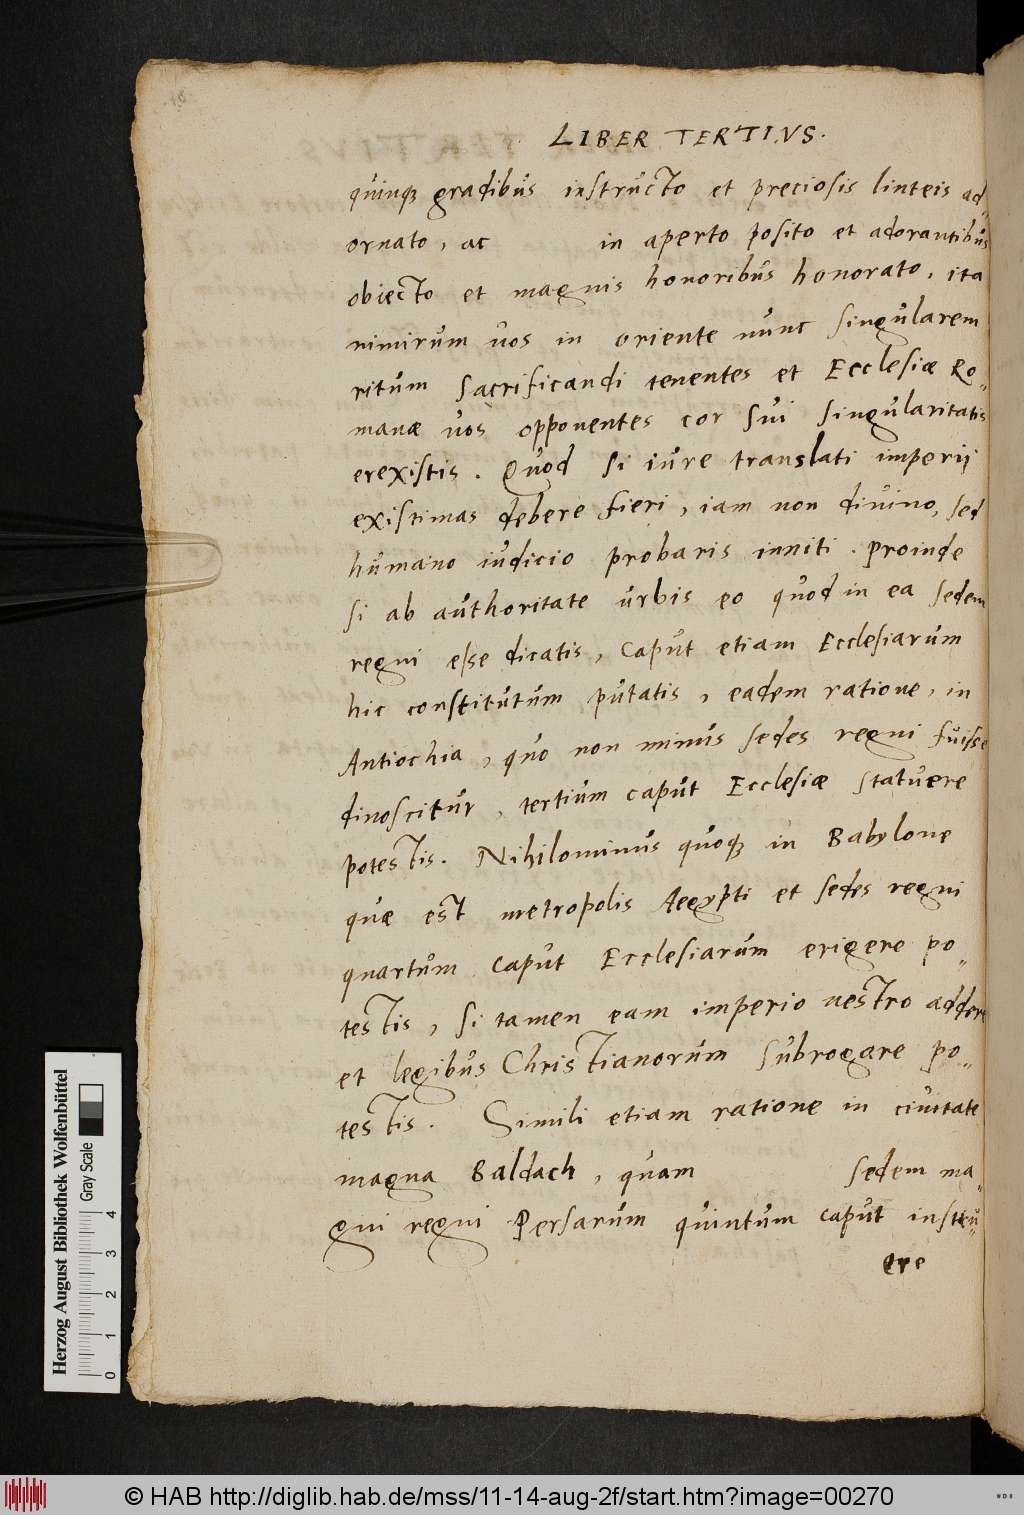 LIBER TERTIVS.
quinq gradibus instructo et preciosis linteis ad-
ornato, ac in aperto posito et adorantibus
obiecto et magnis honoribus honorato, ita
nimirum vos in oriente nunc singularem
ritum sacrificandi tenentes et Ecclesiæ Ro-
manæ vos opponentes cor sui singularitatis
erexistis. Quod si iure translati imperij
existimas debere fieri, iam non diuino, sed
humano iudicio probaris inniti. Proinde
si ab authoritate urbis eo quod in ea sedem
regni esse dicatis, caput etiam Ecclesiarum
hic constitutum putatis, eadem ratione, in
Antiochia, quo non minus sedes regni fuisse
dinoscitur, tertium caput Ecclesiæ statuere
potestis. Nihilominus quoq in Babylone
quæ est metropolis Aegypti et sedes regni
quartum caput Ecclesiarum erigere po-
testis, si tamen eam imperio vestro addere
et legibus Christianorum subrogare po-
testis. Simili etiam ratione in ciuitate
magna Baldach, quam sedem ma-
gni regni Persarum quintum caput institu-
ere
Herzog August Bibliothek Wolfenbüttel
Gray Scale
0 1 2 3 4
© HAB http://diglib.hab.de/mss/11-14-aug-2f/start.htm?image=00270